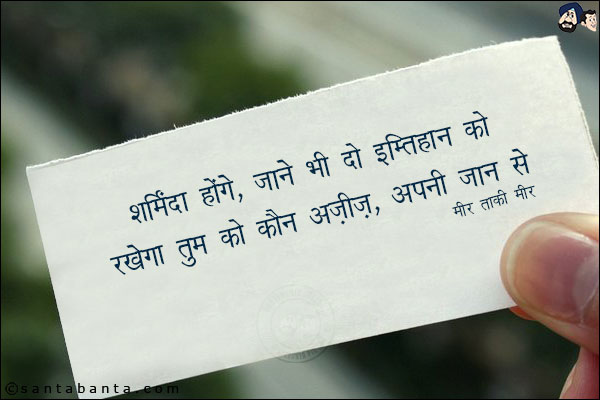 शर्मिंदा होंगे, जाने भी दो इम्तिहान को
रखेगा तुम को कौन अज़ीज़, अपनी जान से
मीर ताकी मीर
©santabanta.com